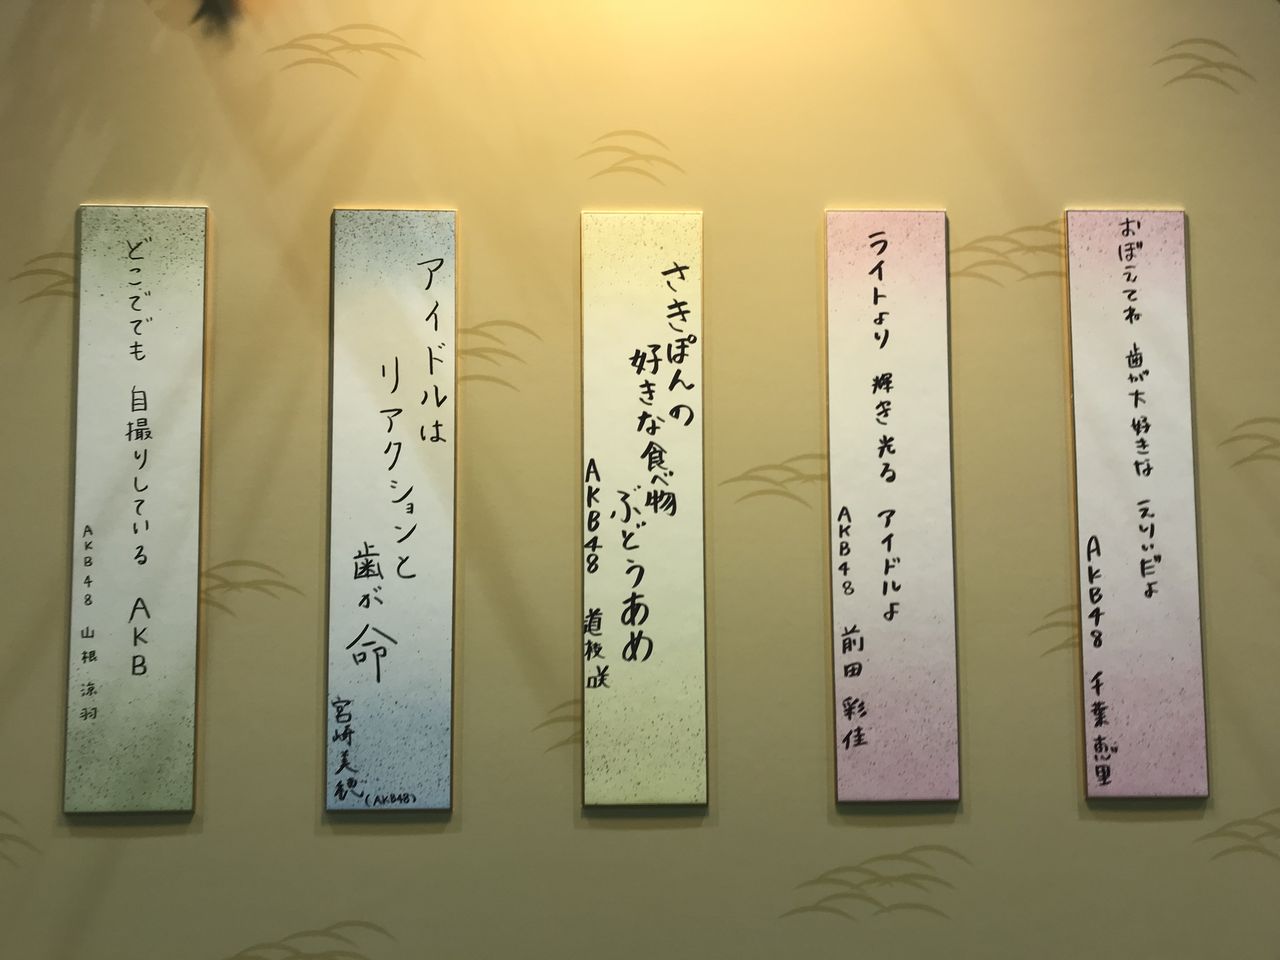 おぼえてね 歯が大好きな えりぃだよ
AKB48 千葉恵里
ライトより 輝き光る アイドルよ
AKB48 前田 彩佳
さきぽんの
好きな食べ物
ぶどうあめ
AKB48 道枝咲
アイドルは
リアクションと
歯が命
宮崎美穂
(AKB48)
どこででも 自撮りしている AKB
AKB48 山根 涼羽